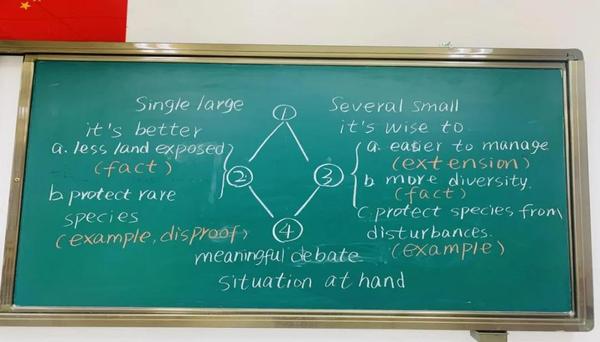 Single large
it's better
a. less land exposed
(fact)
b. protect rare
species
(example, disproof)
①
②
③
④
Several small
it's wise to
a. easier to manage
(extension)
b. more diversity.
(fact)
c. protect species from
disturbances.
(example)
meaningful debate
situation at hand